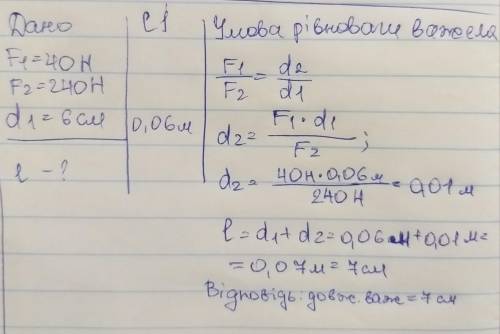 Дано
СІ
Умова рівноваги важеля
F1=40Н
F2=240Н
d1=6см
0,06м
l - ?
F1/F2 = d2/d1
d2= F1·d1/F2 ;
d2= 40Н·0,06м/240Н = 0,01м
l = d1+d2=0,06м+0,01м=
=0,07м=7см
Відповідь: довж. важ=7см